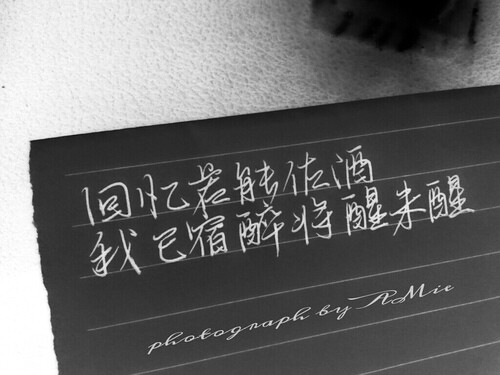 回忆若能佐酒
我已宿醉将醒未醒
photograph by AMie